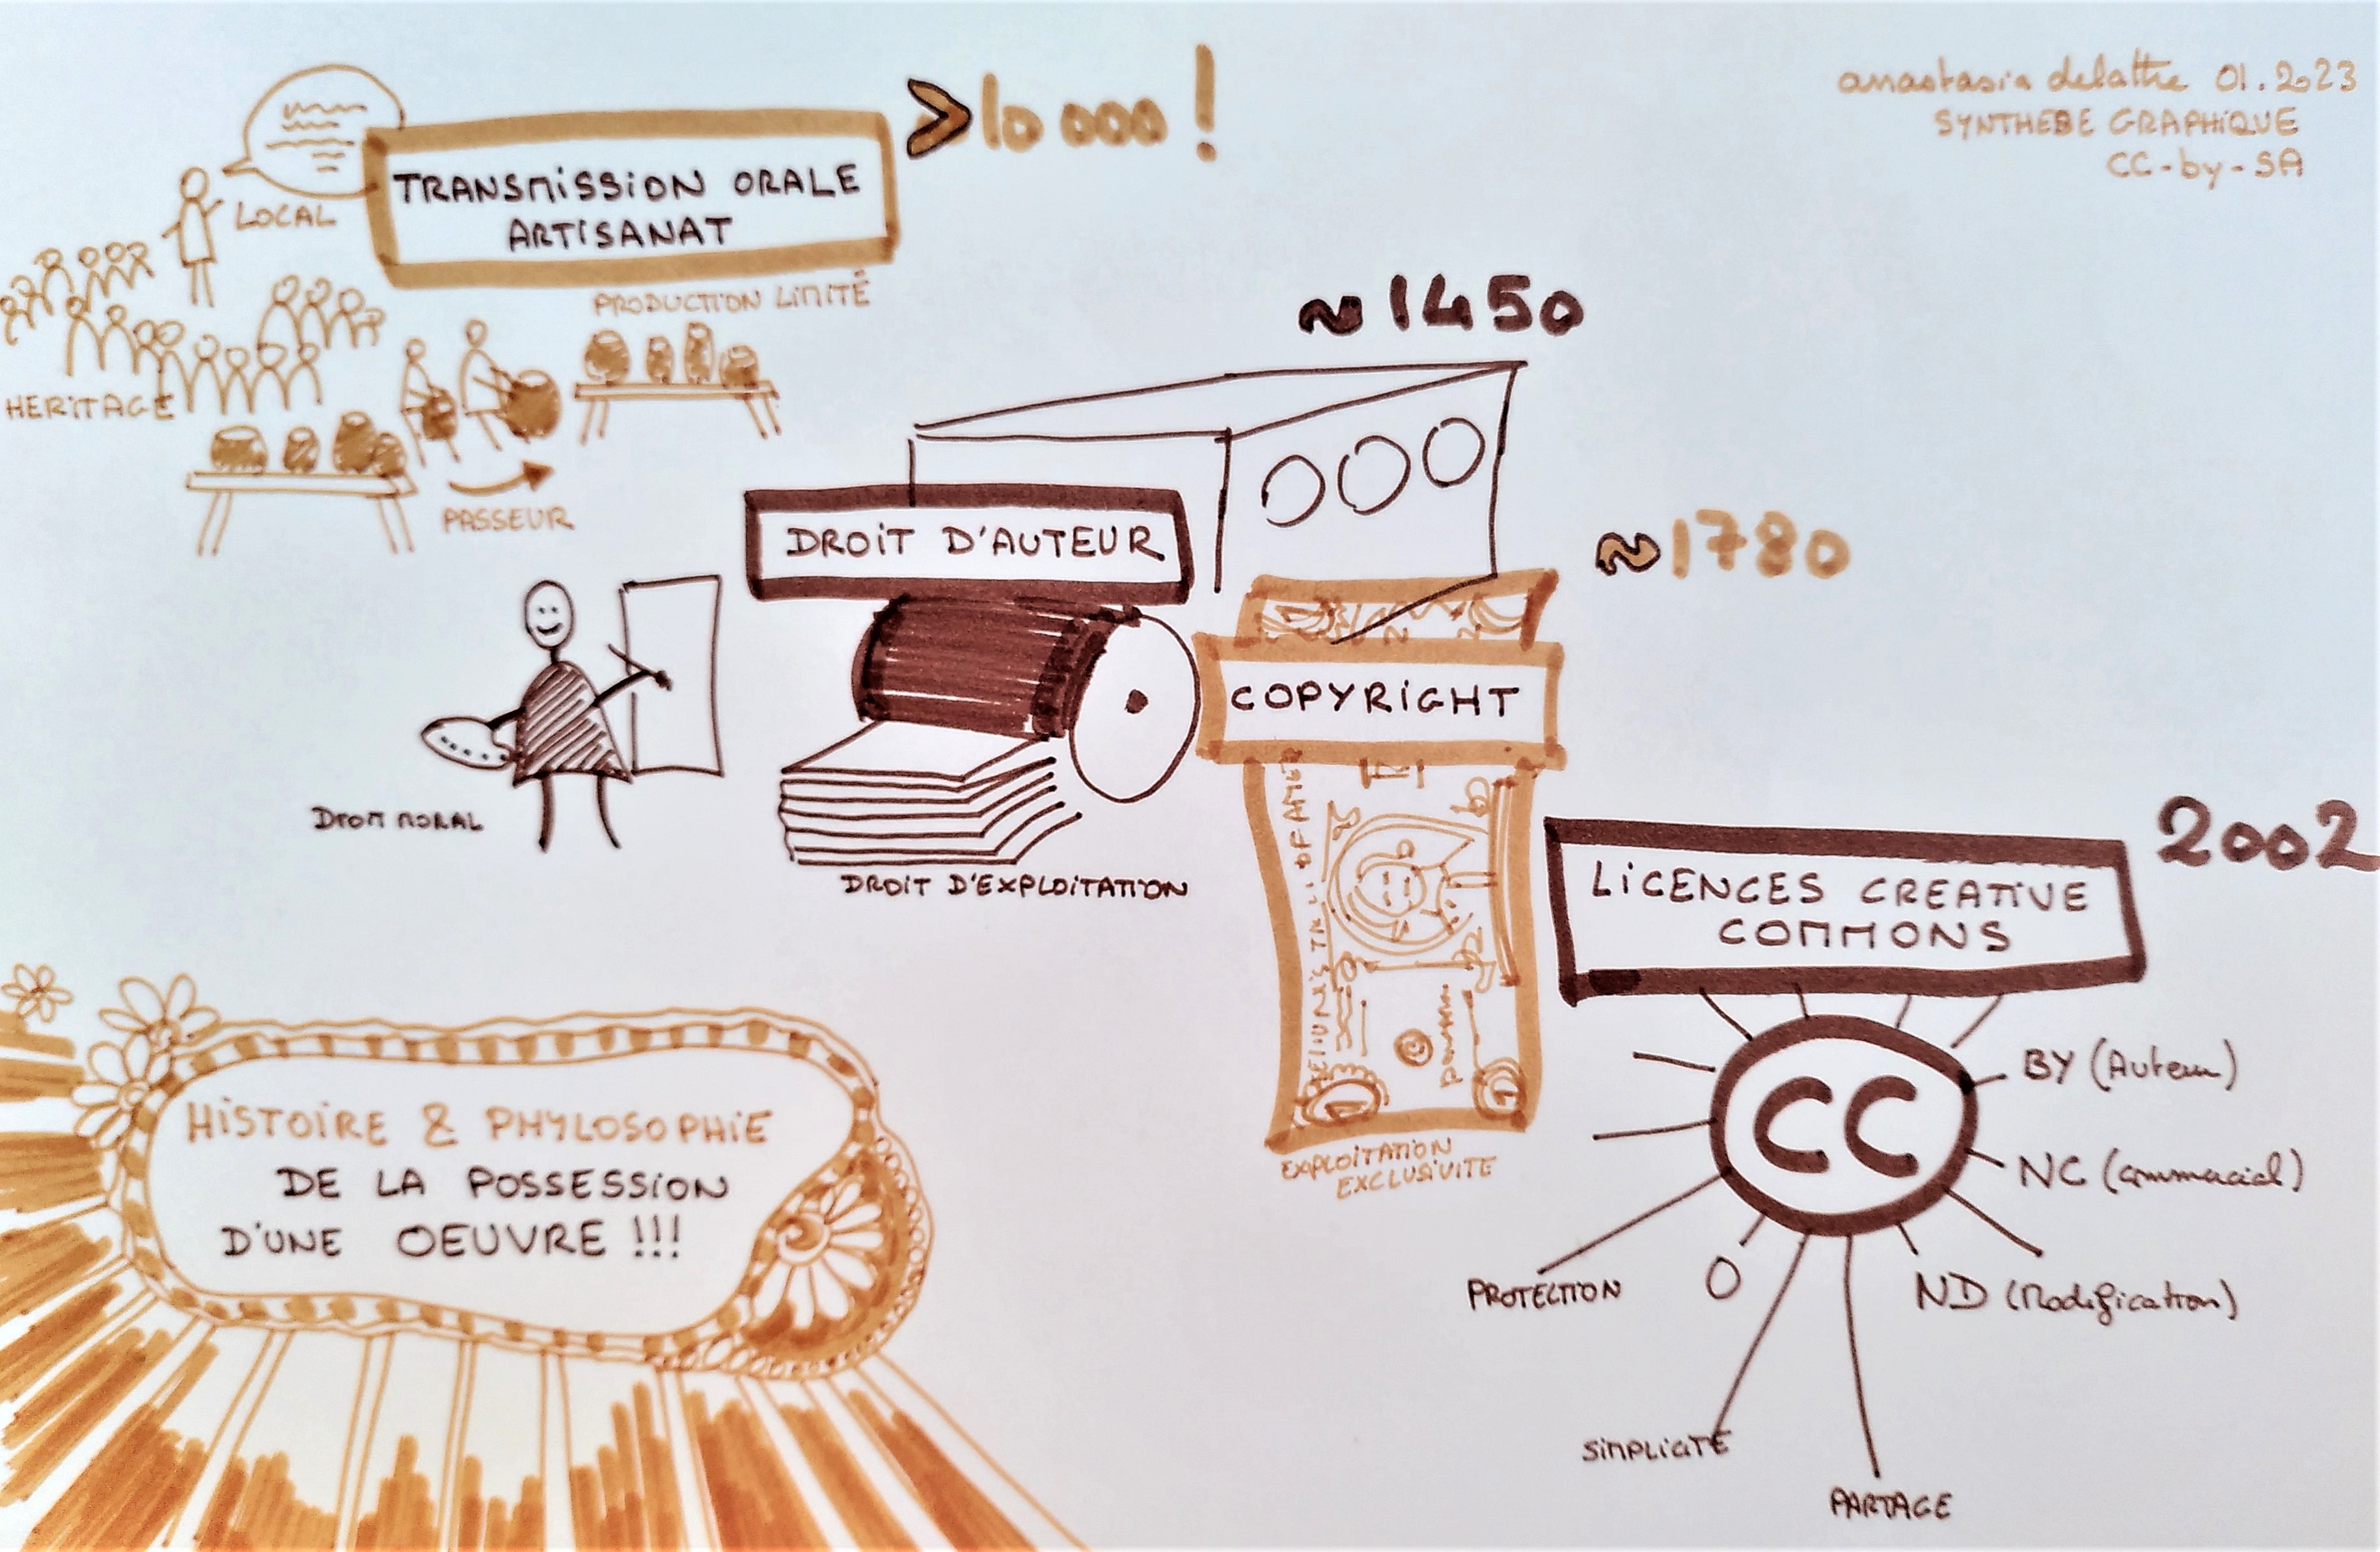 anastasia delattre 01.2023
SYNTHESE GRAPHIQUE
CC-by-SA
>10 000 !
TRANSMISSION ORALE
ARTISANAT
LOCAL
PRODUCTION LIMITÉ
HERITAGE
PASSEUR
~1450
DROIT D'AUTEUR
DROIT MORAL
DROIT D'EXPLOITATION
~1780
COPYRIGHT
OF AMER
EXPLOITATION
EXCLUSIVITE
2002
LICENCES CREATIVE
COMMONS
CC
BY (Auteur)
NC (Commercial)
ND (Modification)
O
PROTECTION
SIMPLICITÉ
PARTAGE
HISTOIRE & PHYLOSOPHIE
DE LA POSSESSION
D'UNE OEUVRE !!!